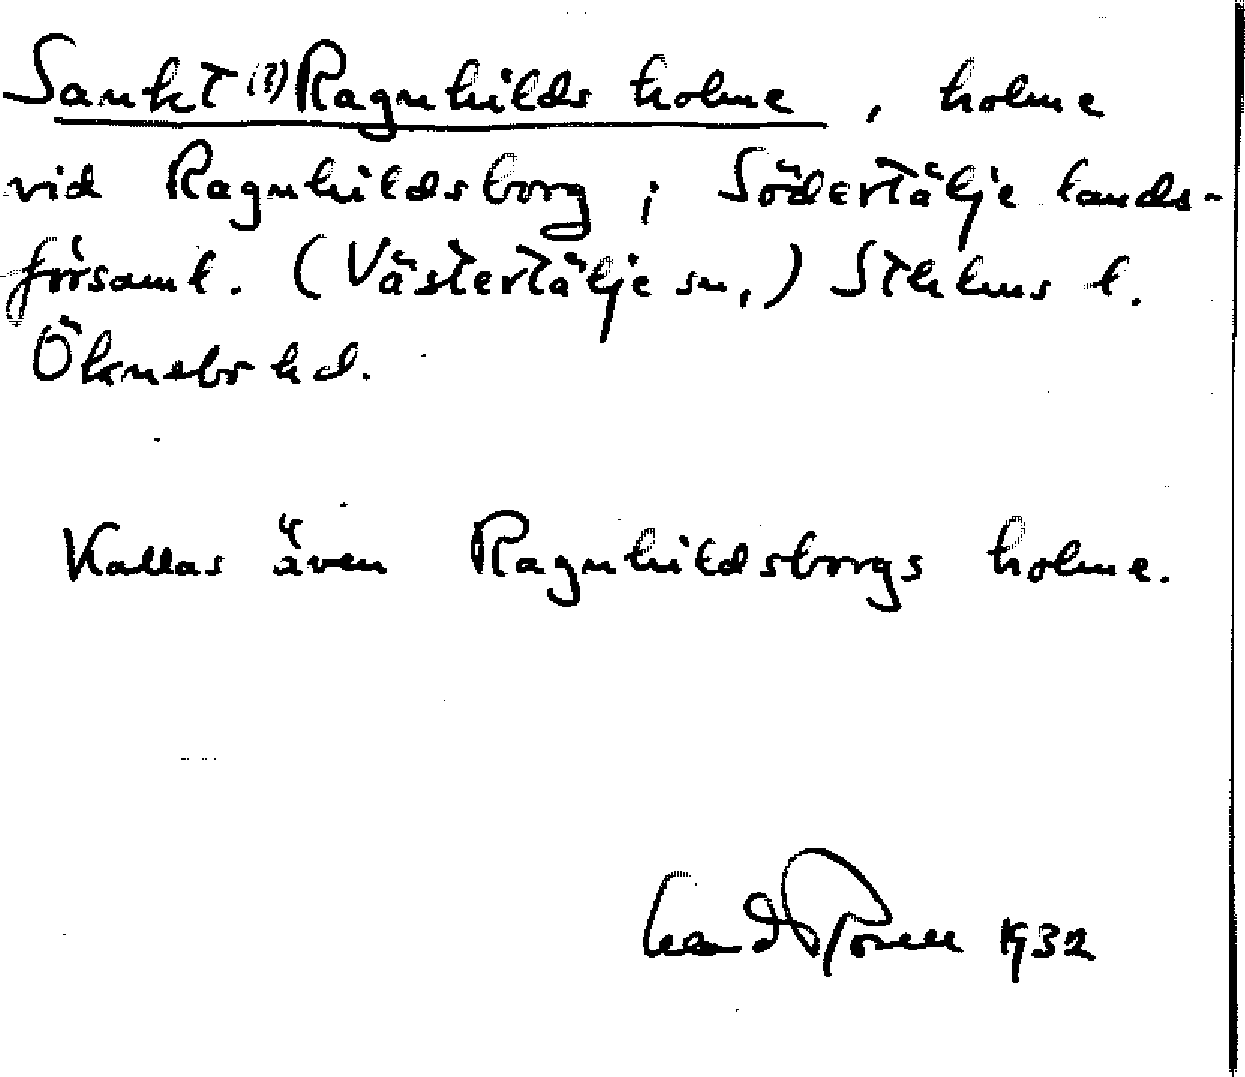 Sankt (?) Ragnhilds holme, holme
vid Ragnhildsborg i Södertälje lands-
församl. (Västertälje sn,) Sthlms l.
Öknebo hd.
Kallas även Ragnhildsborgs holme.
1932